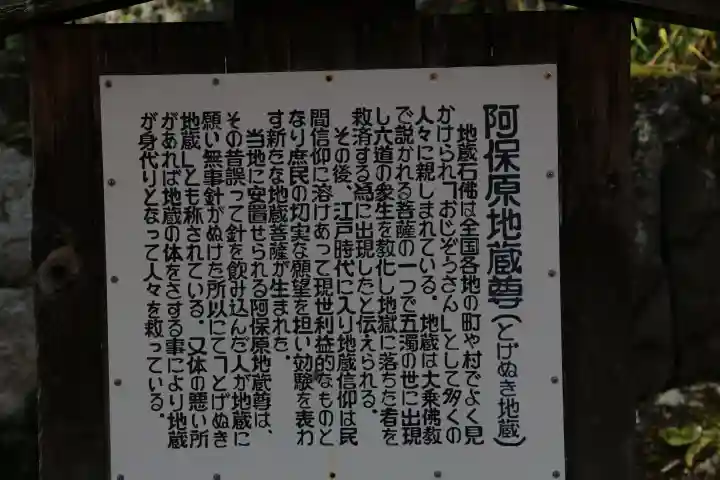 阿保原地蔵尊(とげぬき地蔵)
地蔵石佛は全国各地の町や村でよく見
かけられ「おじぞうさん」として多くの
人々に親しまれている。地蔵は大乗佛教
で説かれる菩薩の一つで五濁の世に出現
し六道の衆生を教化し地獄に落ちた者を
救済する為に出現したと伝えられる。
その後、江戸時代に入り地蔵信仰は民
間信仰に溶けあって現世利益的なものと
なり庶民の切実な願望を担い効験を表わ
す新たな地蔵菩薩が生まれた。
当地に安置せられる阿保原地蔵尊は、
その昔誤って針を飲み込んだ人が地蔵に
願い無事針がぬけた所以にて「とげぬき
地蔵」とも称されている。又体の悪い所
があれば地蔵の体をさする事により地蔵
が身代りとなって人々を救っている。